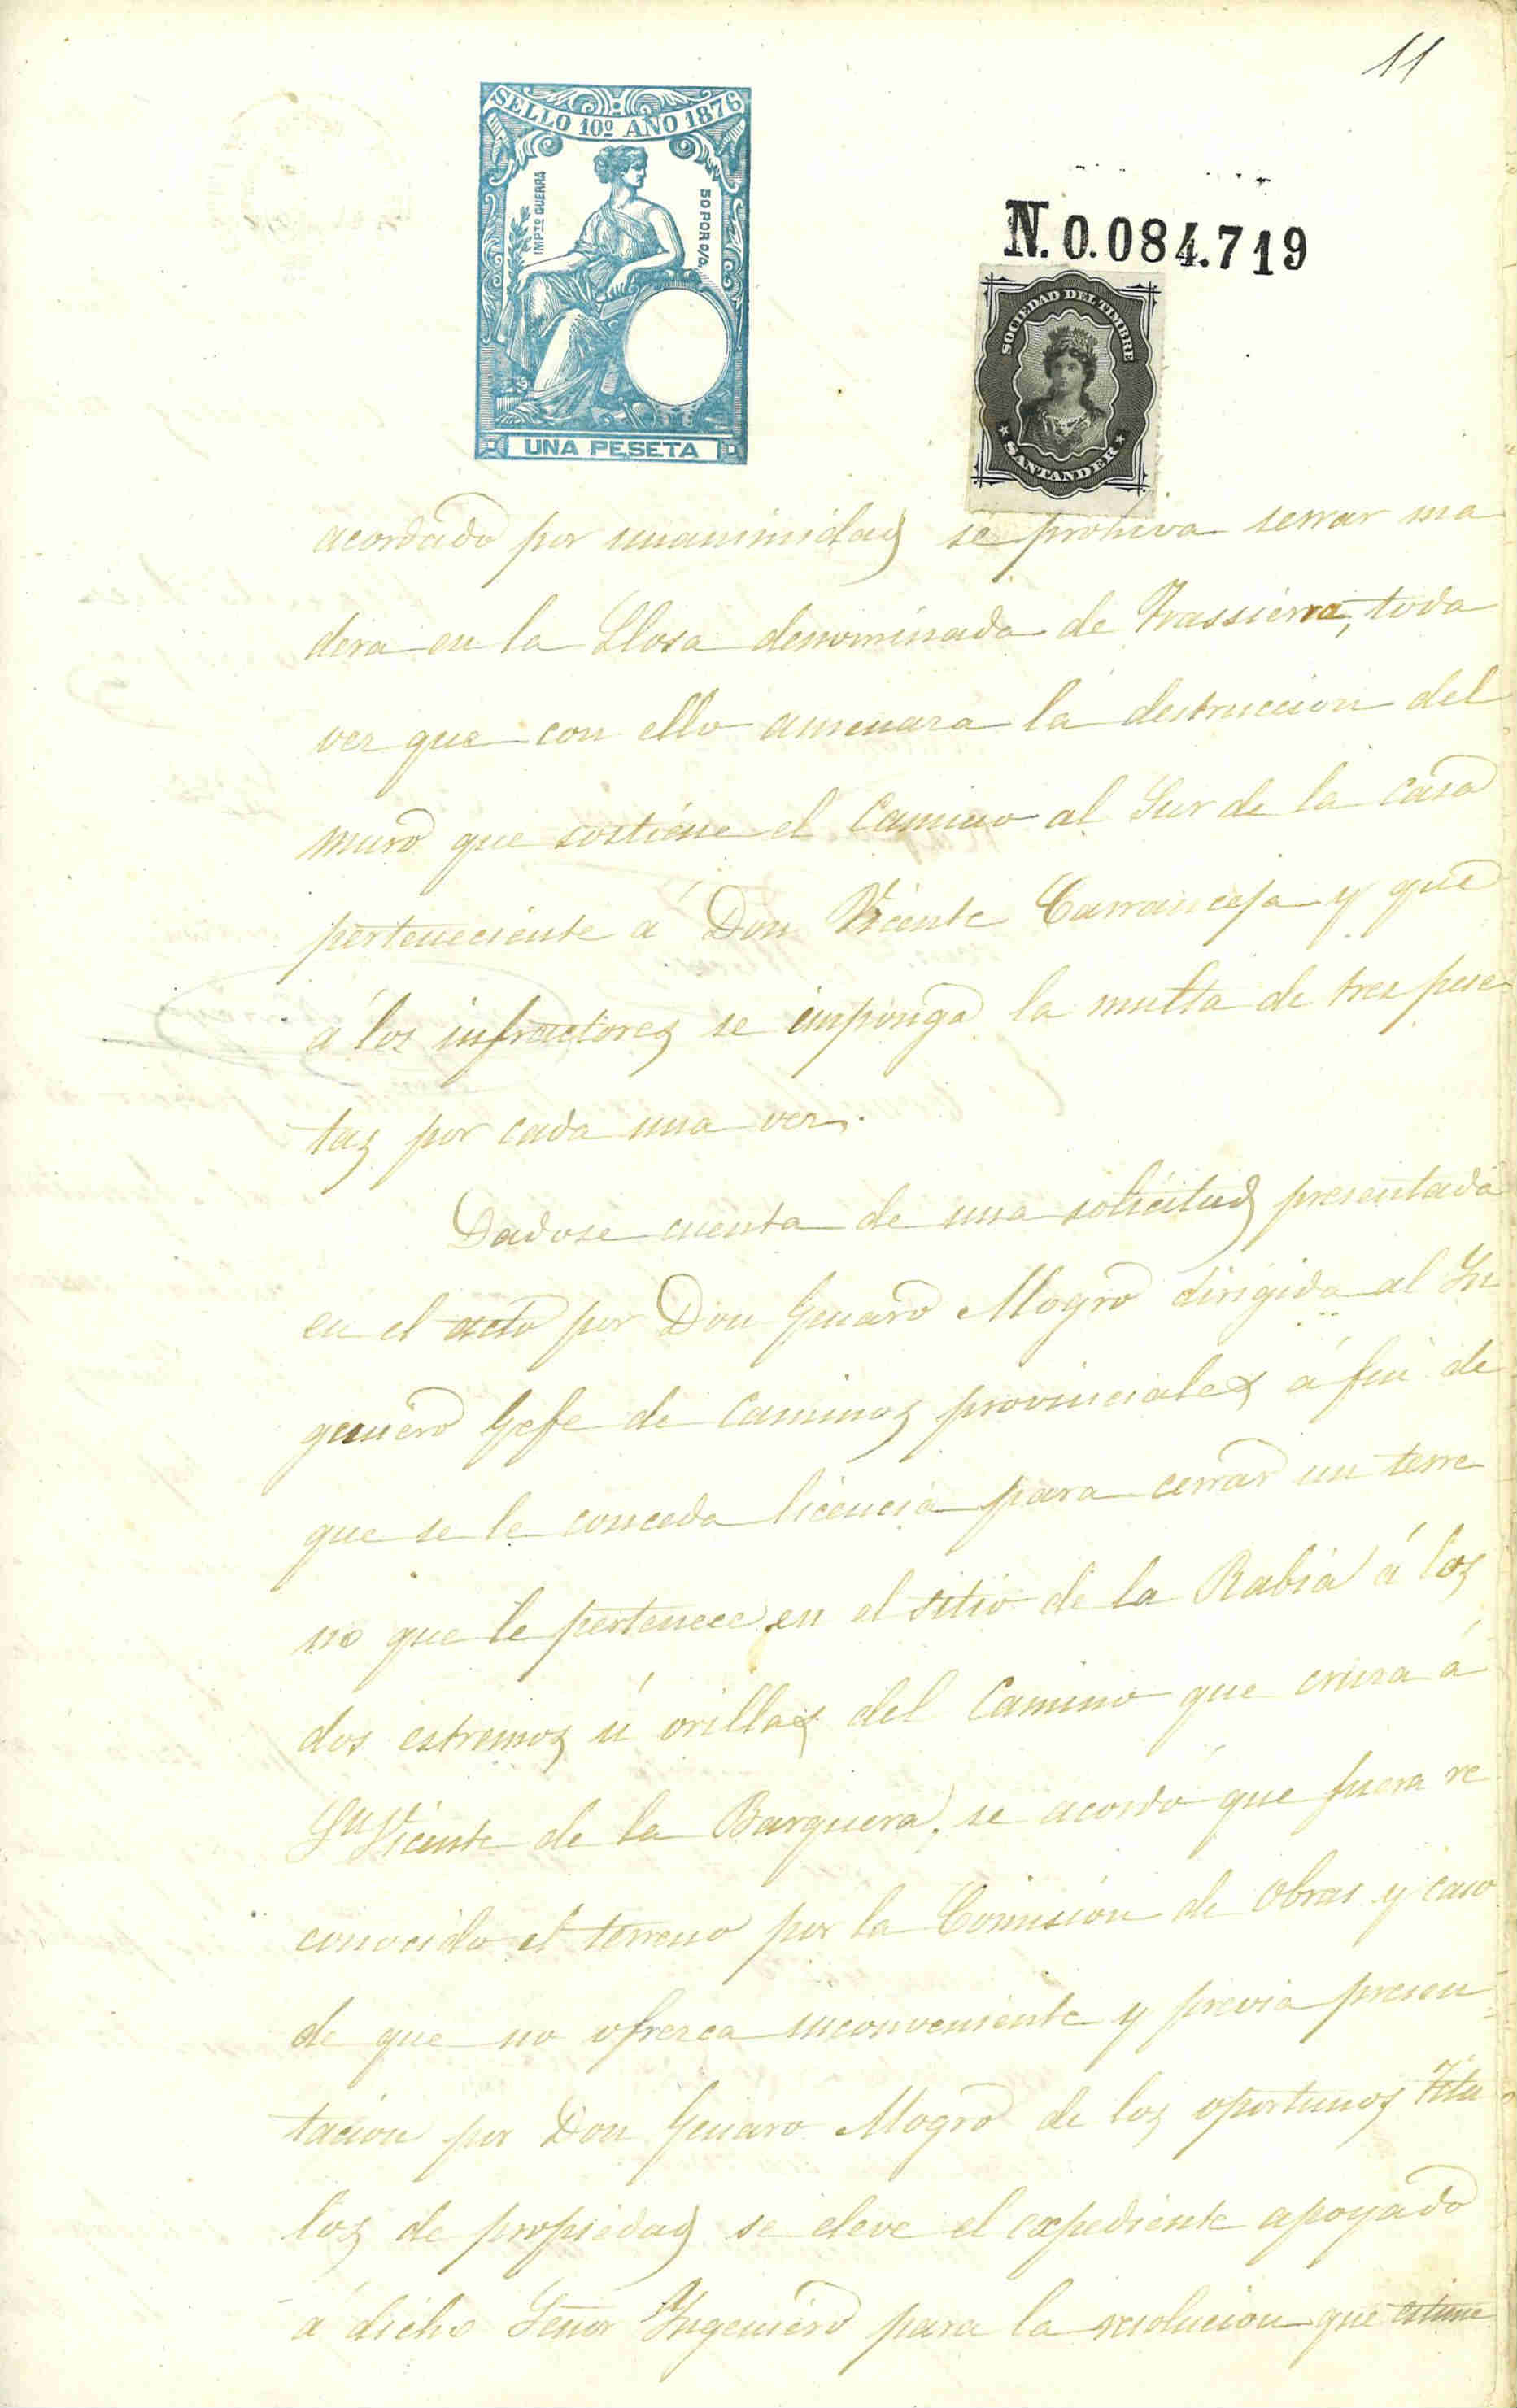 11
SELLO 10º AÑO 1876
IMPTO GUERRA
50 POR 0/0.
UNA PESETA
N. 0.084.719
SOCIEDAD DEL TIMBRE
SANTANDER
acordado por unanimidad se prohiva serrar ma
dera en la Llosa denominada de Trassierra, toda
vez que con ello amenaza la destruccion del
muro que sostiene el Camino al Sur de la casa
perteneciente á Don Vicente Carranceja y que
á los infractores se imponga la multa de tres pese
tas por cada una vez.
Dadose cuenta de una solicitud presentada
en el acto por Don Genaro Mogro dirigida al In
geniero Gefe de Caminos provinciales á fin de
que se le conceda licencia para cerrar un terre
no que le pertenece en el sitio de la Rabia á los
dos estremos ú orillas del Camino que cruza á
Sn Vicente de la Barquera, se acordó que fuera re
conocido el terreno por la Comision de Obras y caso
de que no ofrezca inconveniente y previa presen
tacion por Don Genaro Mogro de los oportunos titu
los de propiedad se eleve el expediente apoyado
á dicho Señor Ingeniero para la resolucion que estime